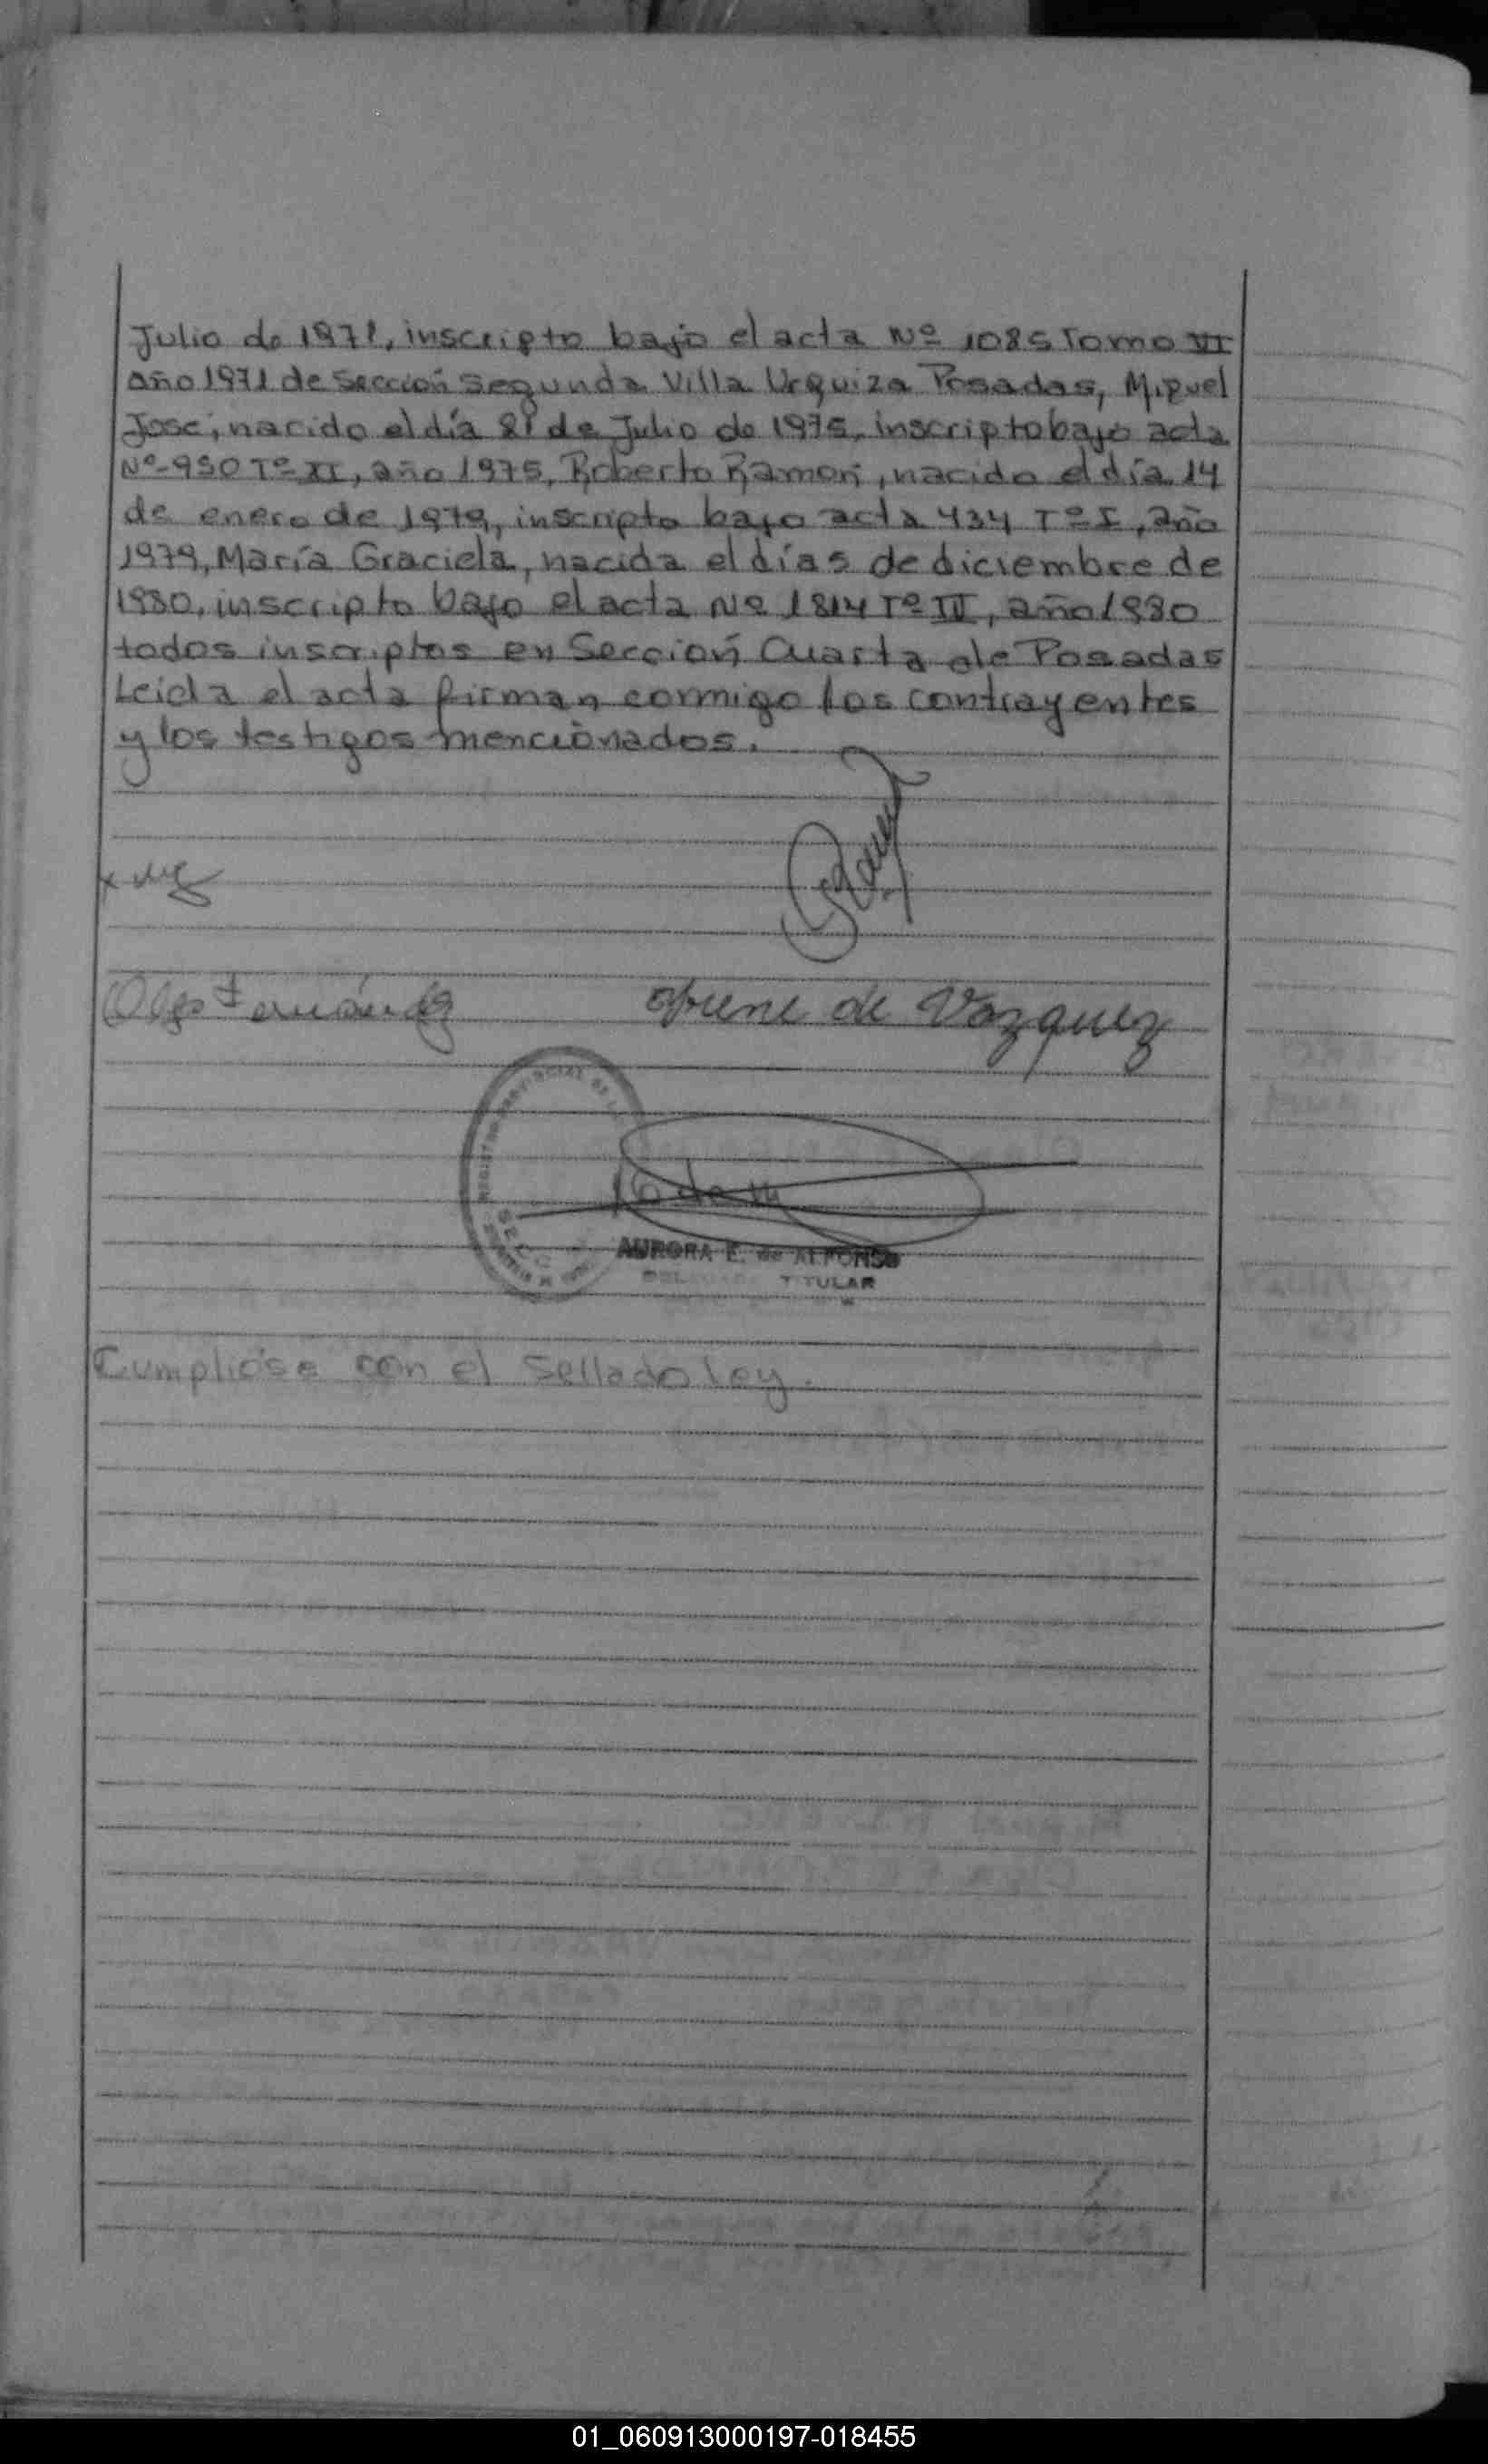 Julio de 1971, inscripto bajo el acta Nº 1085 Tomo VI
año 1971 de Sección Segunda Villa Urquiza Posadas, Miguel
José, nacido el día 21 de Julio de 1975, inscripto bajo acta
Nº 950 Tº XI, año 1975, Roberto Ramón, nacido el día 14
de enero de 1979, inscripto bajo acta 434 Tº I, año
1979, María Graciela, nacida el día 5 de diciembre de
1980, inscripto bajo el acta Nº 1814 Tº III, año 1980
todos inscriptos en Sección Cuarta de Posadas
Leida el acta firman conmigo los contrayentes
y los testigos mencionados.
Olga Fernández
Irene de Vazquez
REGISTRO PROVINCIAL DE L
AURORA E. de ALFONSO
TITULAR
Cumpliose con el Sellado ley.
01_060913000197-018455